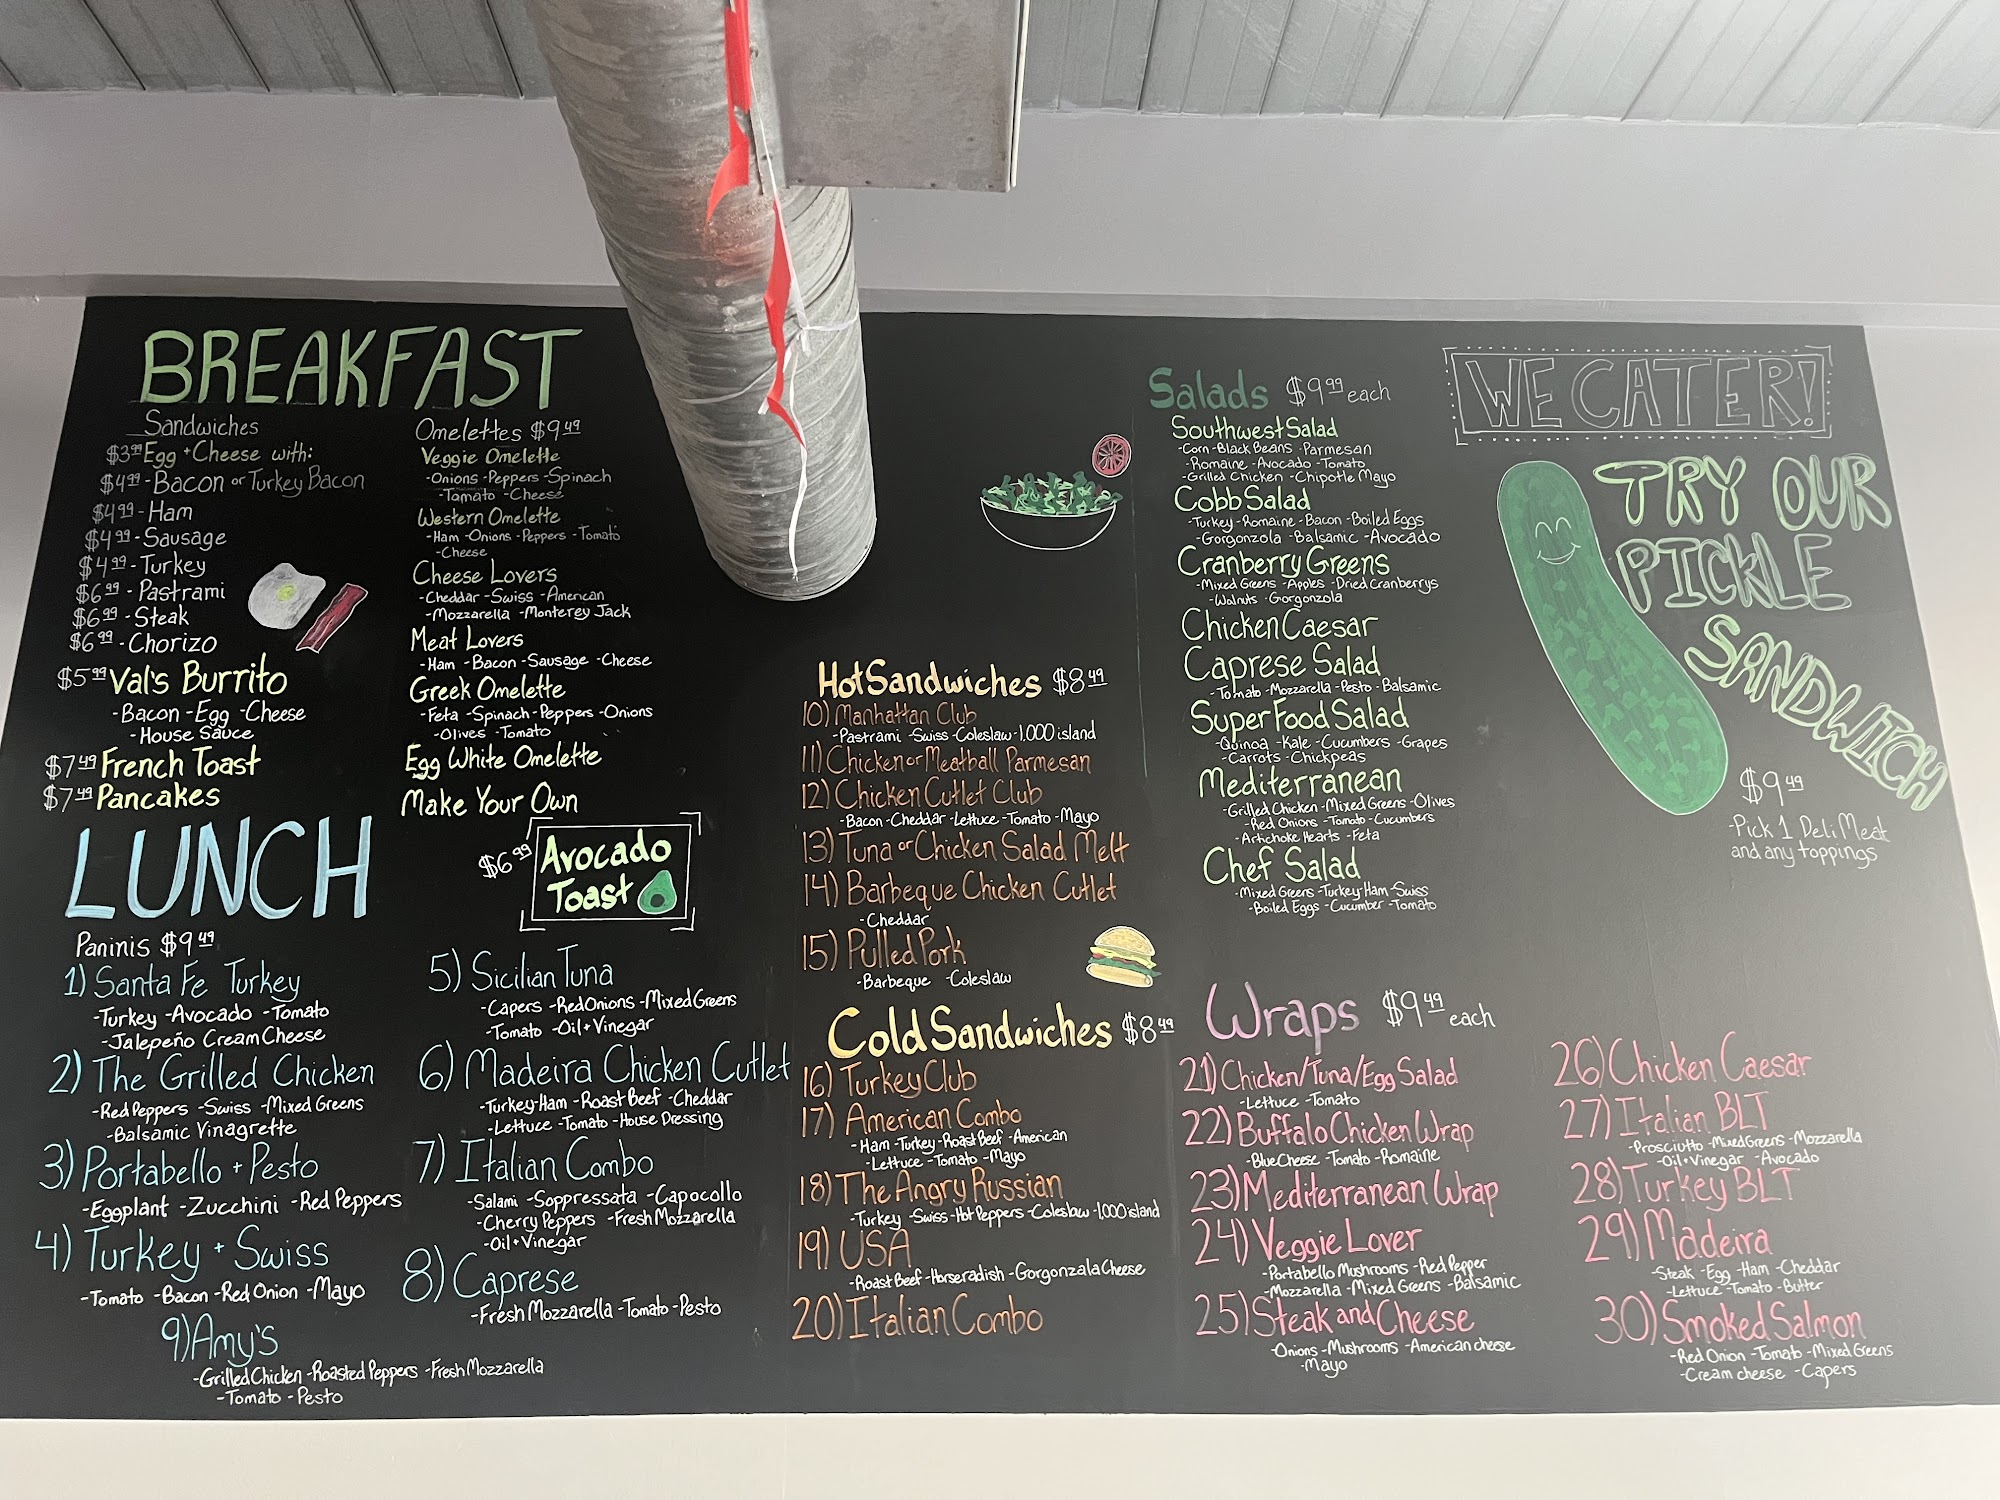 BREAKFAST
Sandwiches
$3.99 Egg + Cheese with:
$4.99 - Bacon or Turkey Bacon
$4.99 - Ham
$4.99 - Sausage
$4.99 - Turkey
$6.99 - Pastrami
$6.99 - Steak
$6.99 - Chorizo
$5.99 Val's Burrito
-Bacon -Egg -Cheese
-House Sauce
$7.49 French Toast
$7.49 Pancakes
Omelettes $9.49
Veggie Omelette
-Onions -Peppers -Spinach
-Tomato -Cheese
Western Omelette
-Ham -Onions -Peppers -Tomato
-Cheese
Cheese Lovers
-Cheddar -Swiss -American
-Mozzarella -Monterey Jack
Meat Lovers
-Ham -Bacon -Sausage -Cheese
Greek Omelette
-Feta -Spinach -Peppers -Onions
-Olives -Tomato
Egg White Omelette
Make Your Own
$6.99 Avocado
Toast
LUNCH
Paninis $9.49
1) Santa Fe Turkey
-Turkey -Avocado -Tomato
-Jalepeño Cream Cheese
2) The Grilled Chicken
-Red Peppers -Swiss -Mixed Greens
-Balsamic Vinagrette
3) Portabello + Pesto
-Eggplant -Zucchini -Red Peppers
4) Turkey + Swiss
-Tomato -Bacon -Red Onion -Mayo
5) Sicilian Tuna
-Capers -Red Onions -Mixed Greens
-Tomato -Oil + Vinegar
6) Madeira Chicken Cutlet
-Turkey -Ham -Roast Beef -Cheddar
-Lettuce -Tomato -House Dressing
7) Italian Combo
-Salami -Soppressata -Capocollo
-Cherry Peppers -Fresh Mozzarella
-Oil + Vinegar
8) Caprese
-Fresh Mozzarella -Tomato -Pesto
9) Amy's
-Grilled Chicken -Roasted Peppers -Fresh Mozzarella
-Tomato -Pesto
Hot Sandwiches $8.49
10) Manhattan Club
-Pastrami -Swiss -Coleslaw -1,000 island
11) Chicken or Meatball Parmesan
12) Chicken Cutlet Club
-Bacon -Cheddar -Lettuce -Tomato -Mayo
13) Tuna or Chicken Salad Melt
14) Barbeque Chicken Cutlet
-Cheddar
15) Pulled Pork
-Barbeque -Coleslaw
Cold Sandwiches $8.49
16) Turkey Club
17) American Combo
-Ham -Turkey -Roast Beef -American
-Lettuce -Tomato -Mayo
18) The Angry Russian
-Turkey -Swiss -Hot Peppers -Coleslaw -1,000 island
19) USA
-Roast Beef -Horseradish -Gorgonzala Cheese
20) Italian Combo
Salads $9.99 each
Southwest Salad
-Corn -Black Beans -Parmesan
-Romaine -Avocado -Tomato
-Grilled Chicken -Chipotle Mayo
Cobb Salad
-Turkey -Romaine -Bacon -Boiled Eggs
-Gorgonzola -Balsamic -Avocado
Cranberry Greens
-Mixed Greens -Apples -Dried Cranberrys
-Walnuts -Gorgonzola
Chicken Caesar
Caprese Salad
-Tomato -Mozzarella -Pesto -Balsamic
Super Food Salad
-Quinoa -Kale -Cucumbers -Grapes
-Carrots -Chickpeas
Mediterranean
-Grilled Chicken -Mixed Greens -Olives
-Red Onions -Tomato -Cucumbers
-Artichoke Hearts -Feta
Chef Salad
-Mixed Greens -Turkey -Ham -Swiss
-Boiled Eggs -Cucumber -Tomato
WE CATER!
TRY OUR
PICKLE
SANDWICH
$9.49
-Pick 1 Deli Meat
and any toppings
Wraps $9.49 each
21) Chicken/Tuna/Egg Salad
-Lettuce -Tomato
22) Buffalo Chicken Wrap
-Blue Cheese -Tomato -Romaine
23) Mediterranean Wrap
24) Veggie Lover
-Portabello Mushrooms -Red Pepper
-Mozzarella -Mixed Greens -Balsamic
25) Steak and Cheese
-Onions -Mushrooms -American cheese
-Mayo
26) Chicken Caesar
27) Italian BLT
-Prosciutto -Mixed Greens -Mozzarella
-Oil + Vinegar -Avocado
28) Turkey BLT
29) Madeira
-Steak -Egg -Ham -Cheddar
-Lettuce -Tomato -Butter
30) Smoked Salmon
-Red Onion -Tomato -Mixed Greens
-Cream cheese -Capers